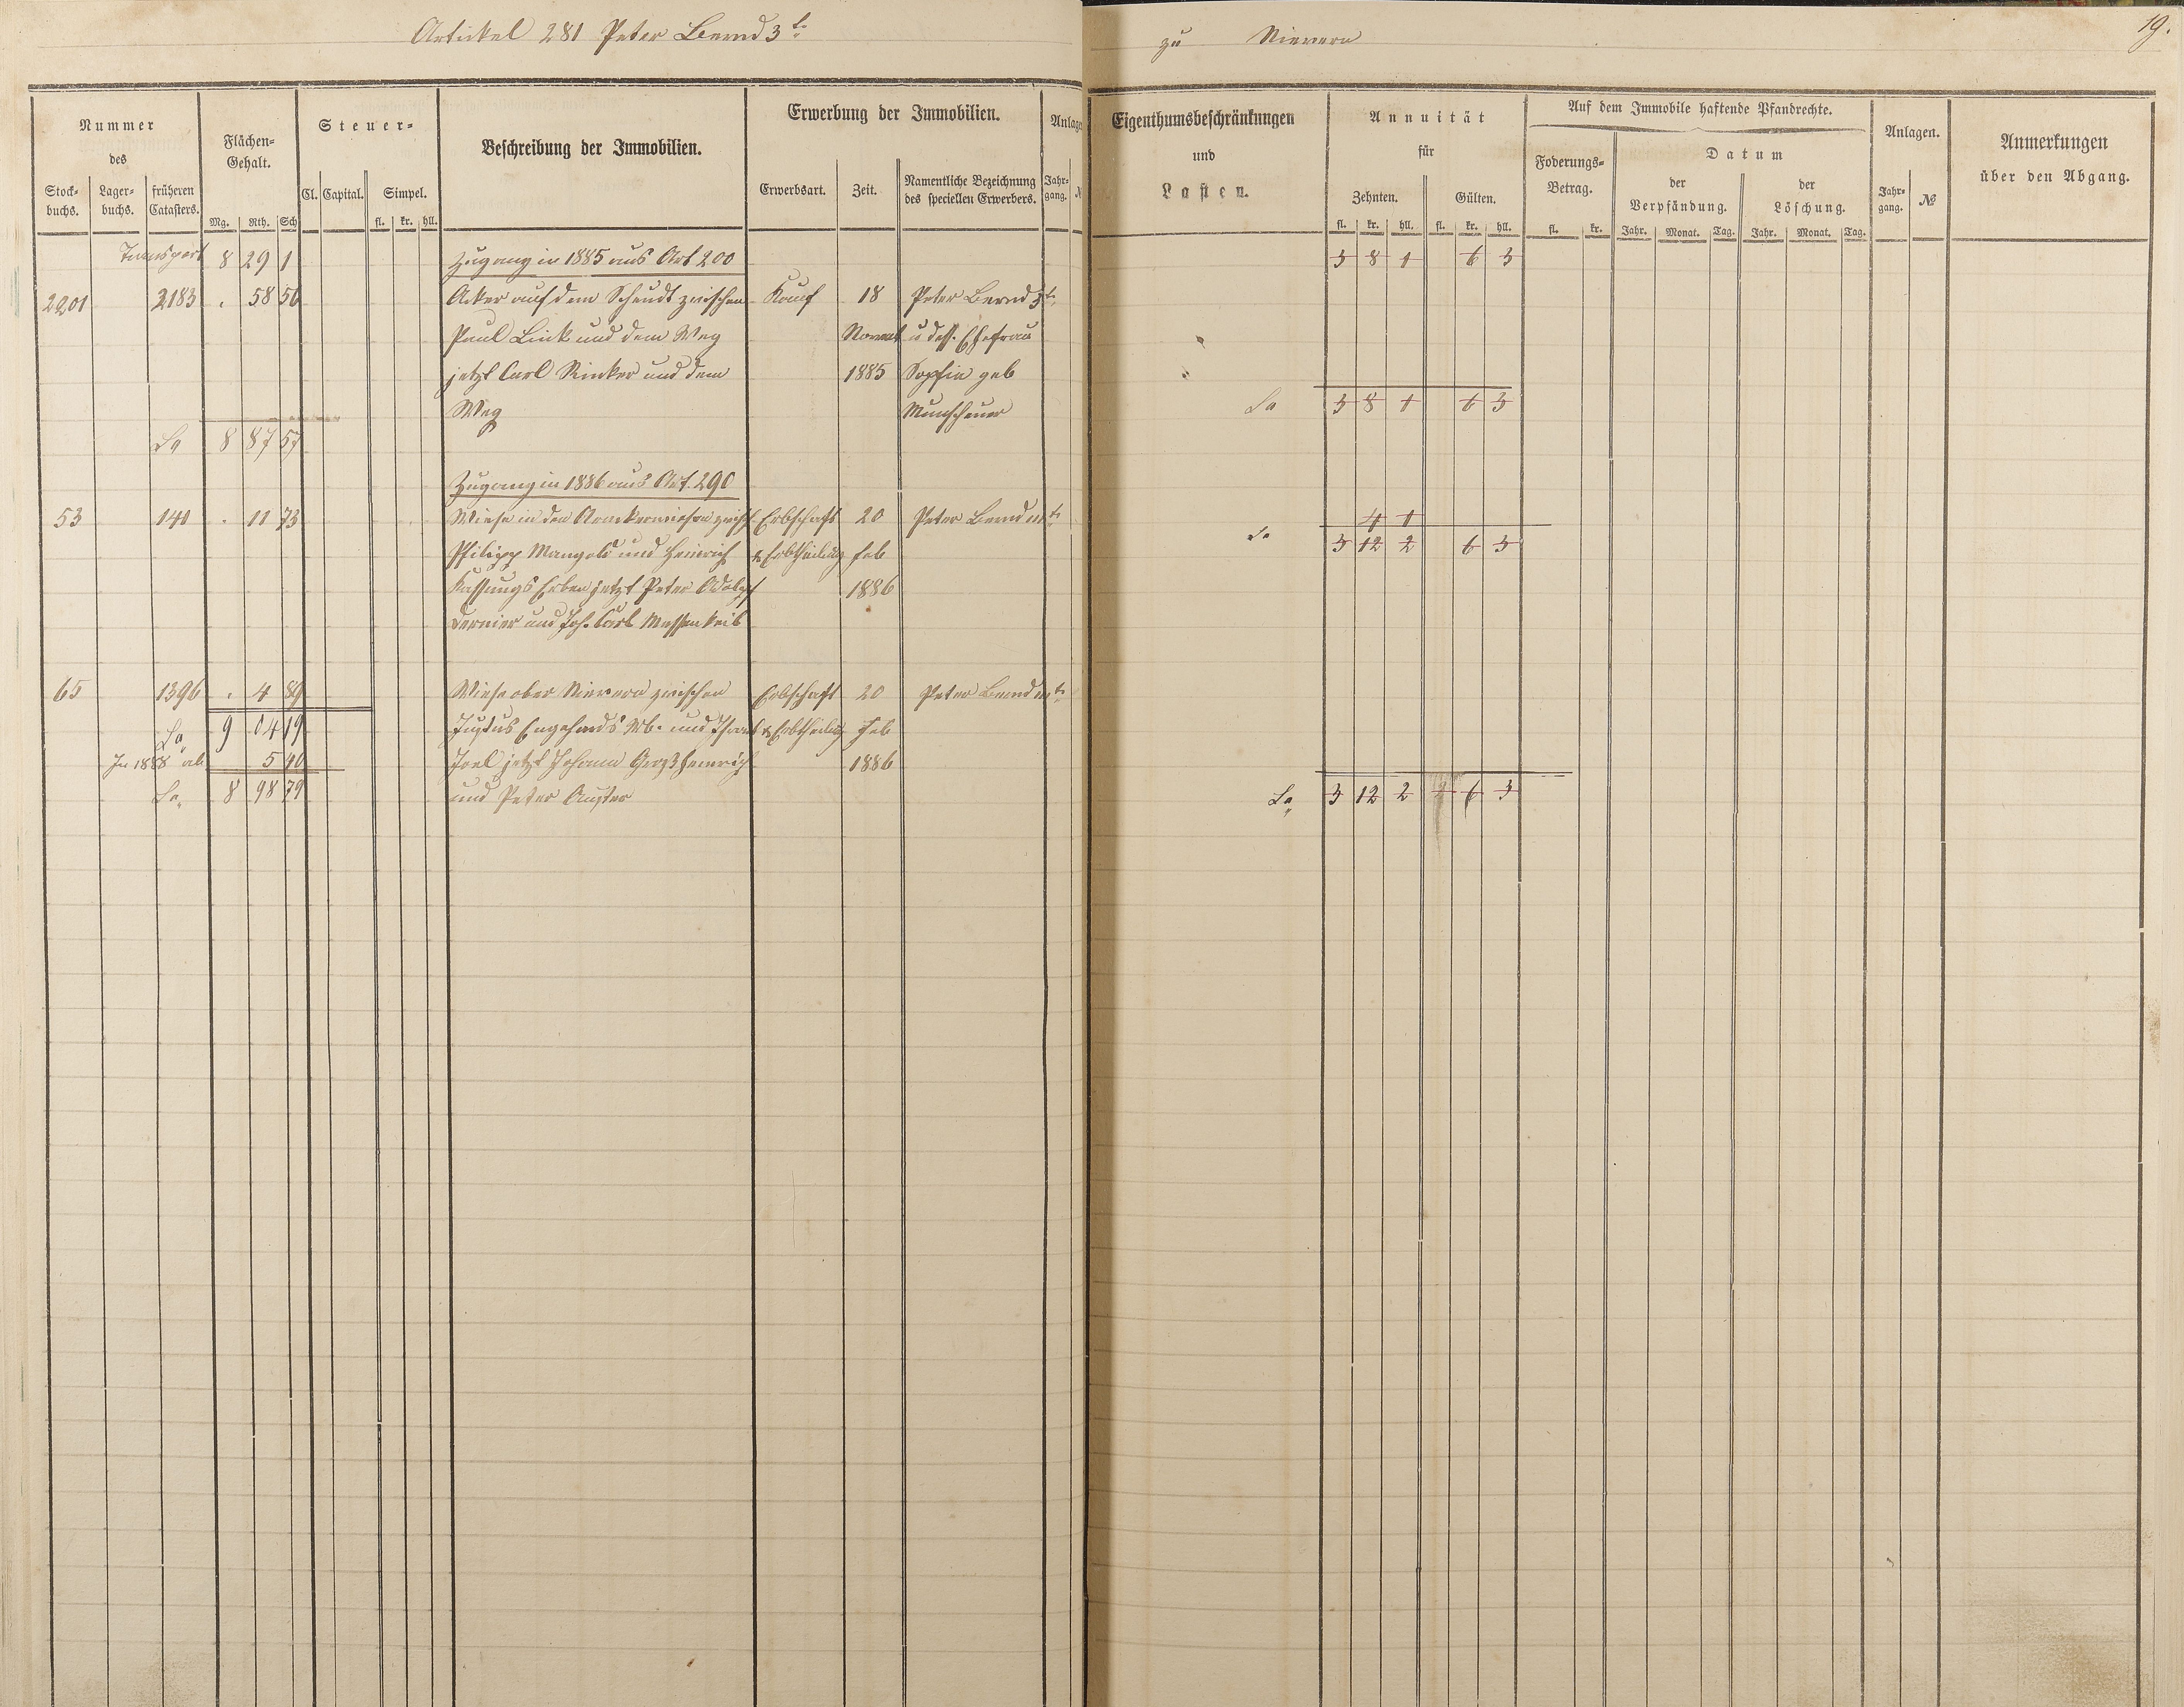 Artikel 281 Peter Bernd 3t.
zu Nievern
19.
Nummer
des
Stock-
buchs.
Lager-
buchs.
früheren
Catasters.
Flächen-
Gehalt.
Mg. Rth. Sch
Steuer-
Cl. Capital. Simpel.
fl. kr. hll.
Beschreibung der Immobilien.
Erwerbung der Immobilien.
Erwerbsart. Zeit.
Namentliche Bezeichnung
des speciellen Erwerbers.
Anlage
Jahr-
gang.
Eigenthumsbeschränkungen
und
Lasten.
Annuität
für
Zehnten. Gülten.
fl. kr. hll. fl. kr. hll.
Auf dem Immobile haftende Pfandrechte.
Foderungs-
Betrag.
fl. kr.
Datum
der
Verpfändung.
der
Löschung.
Jahr. Monat. Tag. Jahr. Monat. Tag.
Anlagen.
Jahr-
gang.
№
Anmerkungen
über den Abgang.
Transport 8 29 1 Zugang in 1885 aus Art 200 3 8 1 6 3
2201 2183 . 58 56 Acker auf dem Scheudt zwischen Kauf 18 Peter Bernd 3t.
Paul Linck und dem Weg Novemb u dess. Ehefrau
jetzt Carl Rinker und dem 1885 Sophia geb
Weg Munscheuer Sa 3 8 1 6 3
Sa 8 87 57
Zugang in 1886 aus Art. 290
53 140 . 11 73 Wiese in den zwisch. Erbschaft 20 Peter Bernd IIIt. 4 1
Philipp Mangold und Heinrich & Erbtheilung Feb Sa 3 12 2 6 3
Erben jetzt Peter Adolph 1886
und Joh. Carl
65 1396 . 4 89 Wiese ober Nievern zwischen Erbschaft 20 Peter Bernd IIIt.
Sa 9 04 19 Justus Wb. und & Erbtheilung Feb
In 1888 ab 5 40 Joel jetzt Johann Georg Heinrich 1886
Sa. 8 98 79 und Peter Auster Sa 3 12 2 6 3